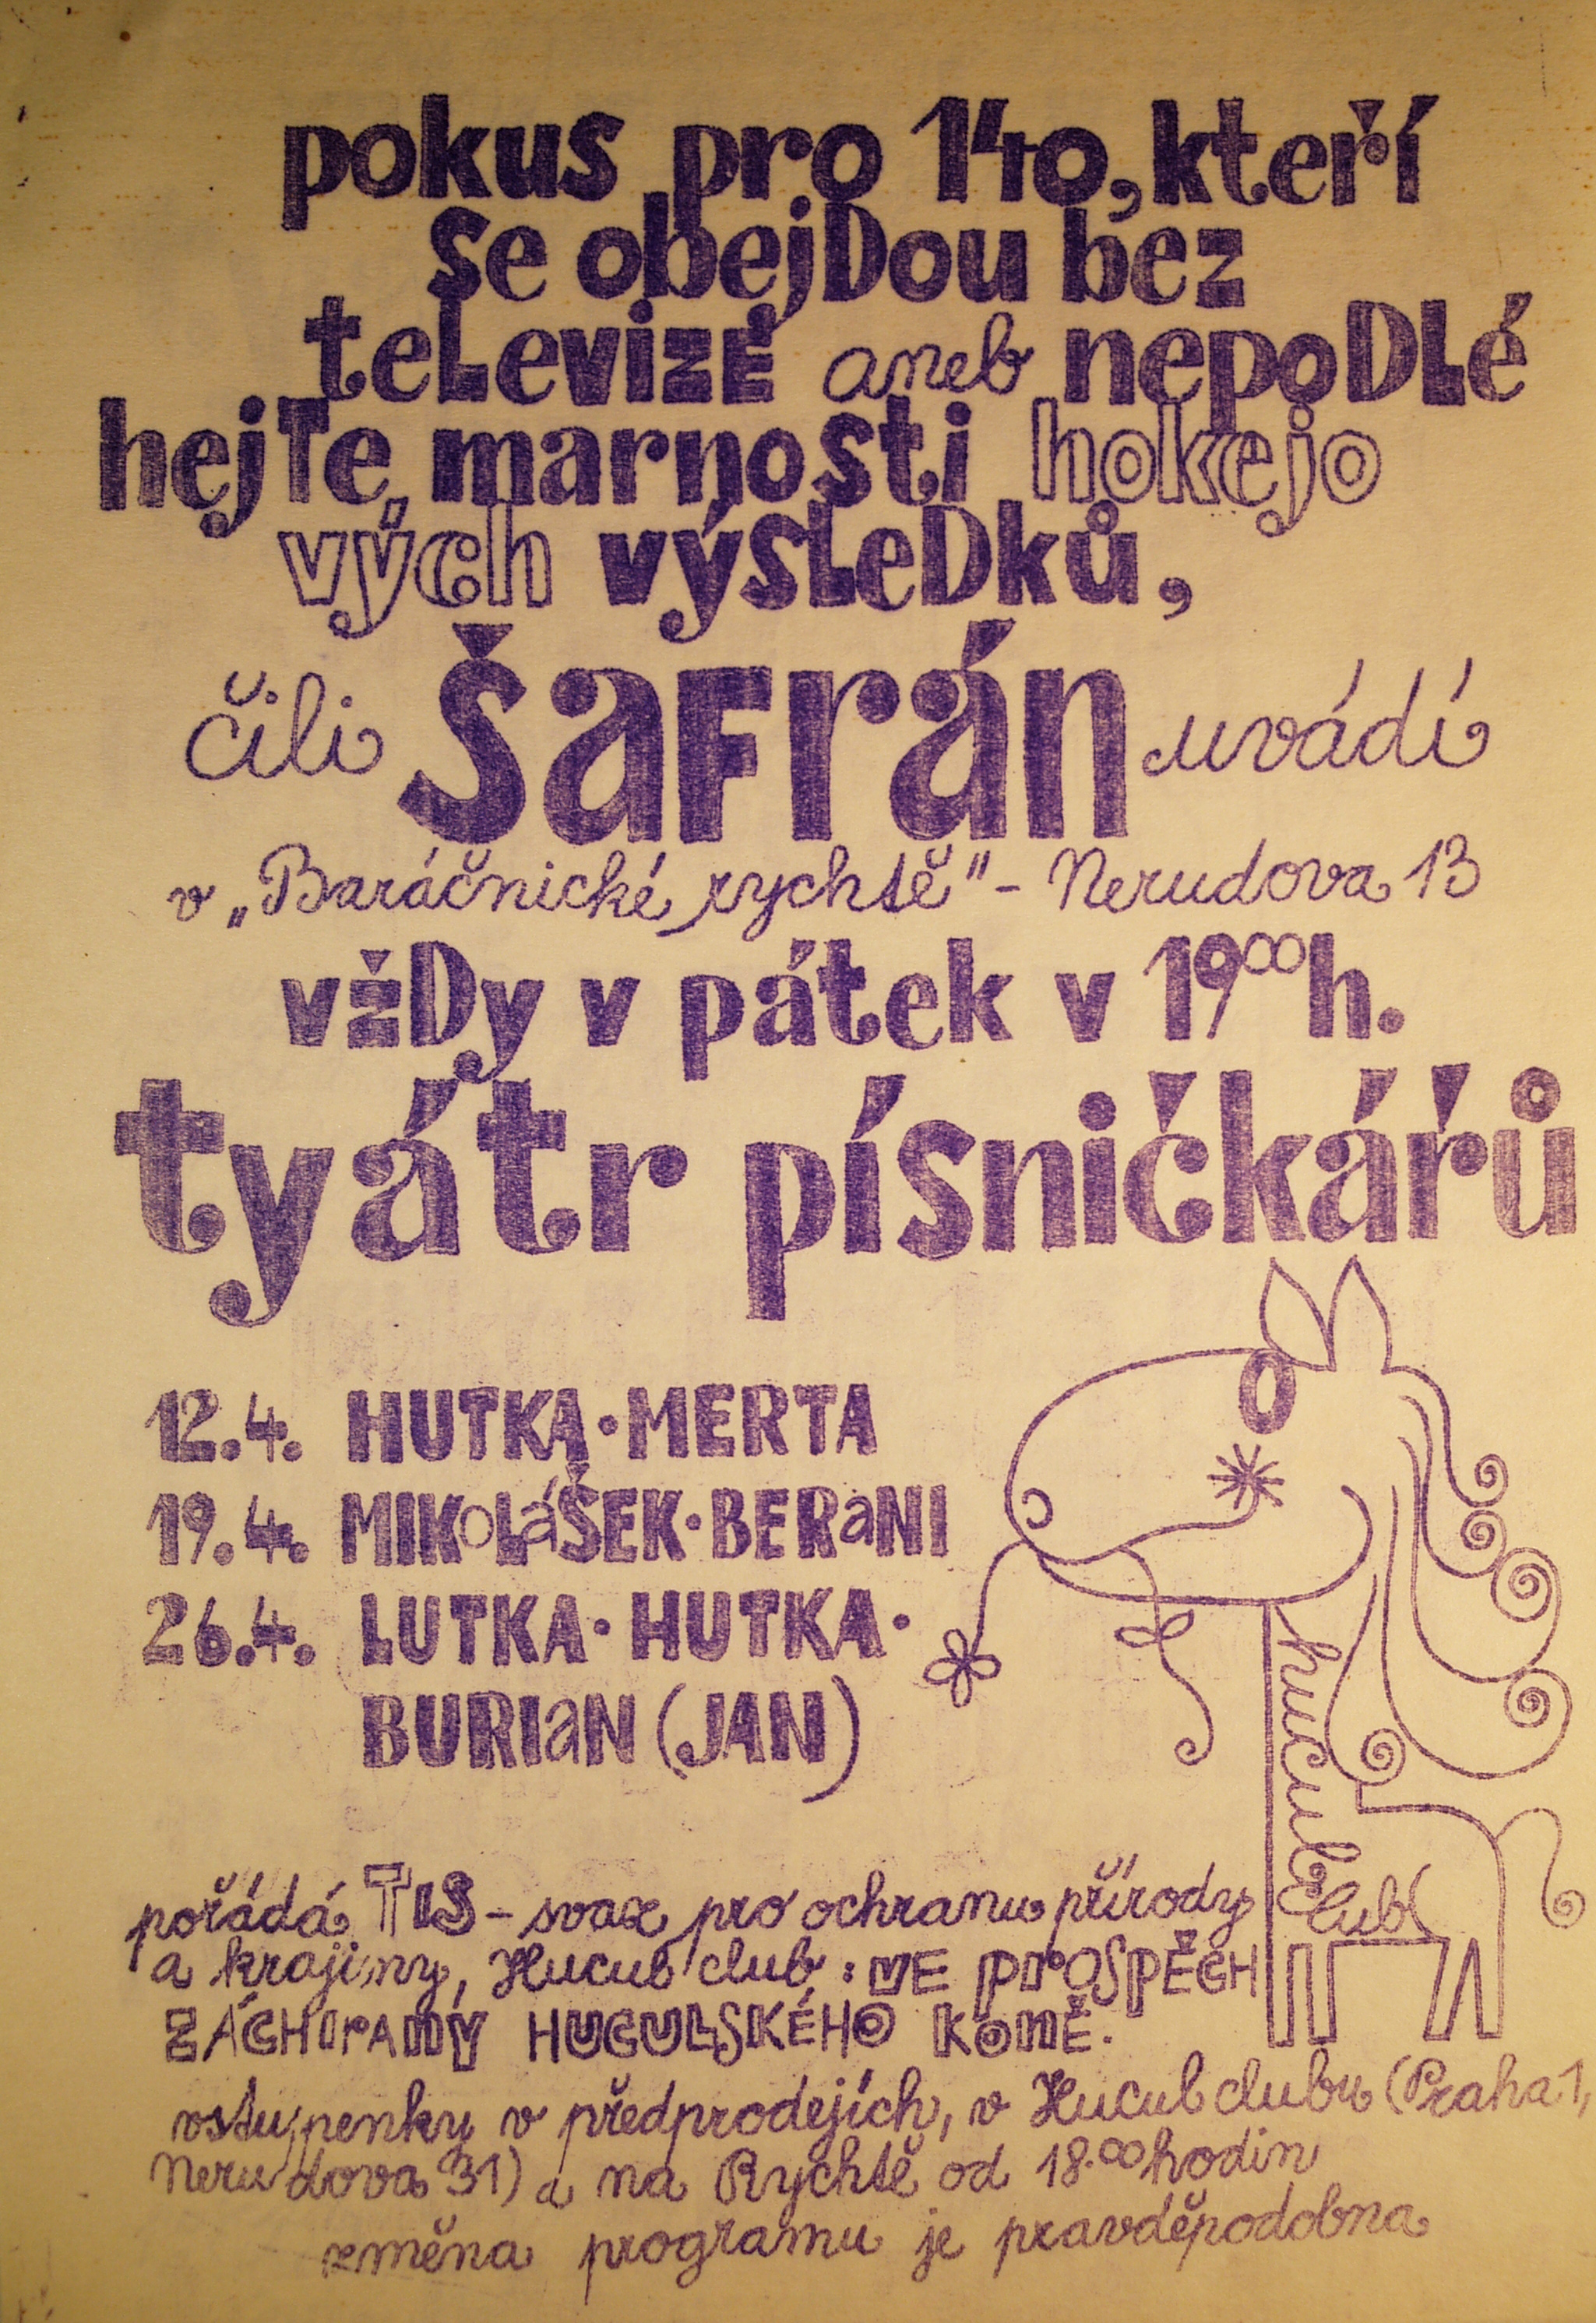 pokus pro 140, kteří
se obejdou bez
televize aneb nepodlé
hejte marnosti hokejo
vých výsledků,
čili Šafrán uvádí
v „Baráčnické rychtě" - Nerudova 13
vždy v pátek v 19⁰⁰ h.
tyátr písničkářů
12.4. HUTKA · MERTA
19.4. MIKOLÁŠEK · BERANI
26.4. LUTKA · HUTKA ·
BURIAN (JAN)
hucul club
pořádá TIS - svaz pro ochranu přírody
a krajiny, Hucul club : VE PROSPĚCH
ZÁCHRANY HUCULSKÉHO KONĚ.
vstupenky v předprodejích, v Hucul clubu (Praha 1,
Nerudova 31) a na Rychtě od 18.⁰⁰ hodin
změna programu je pravděpodobna